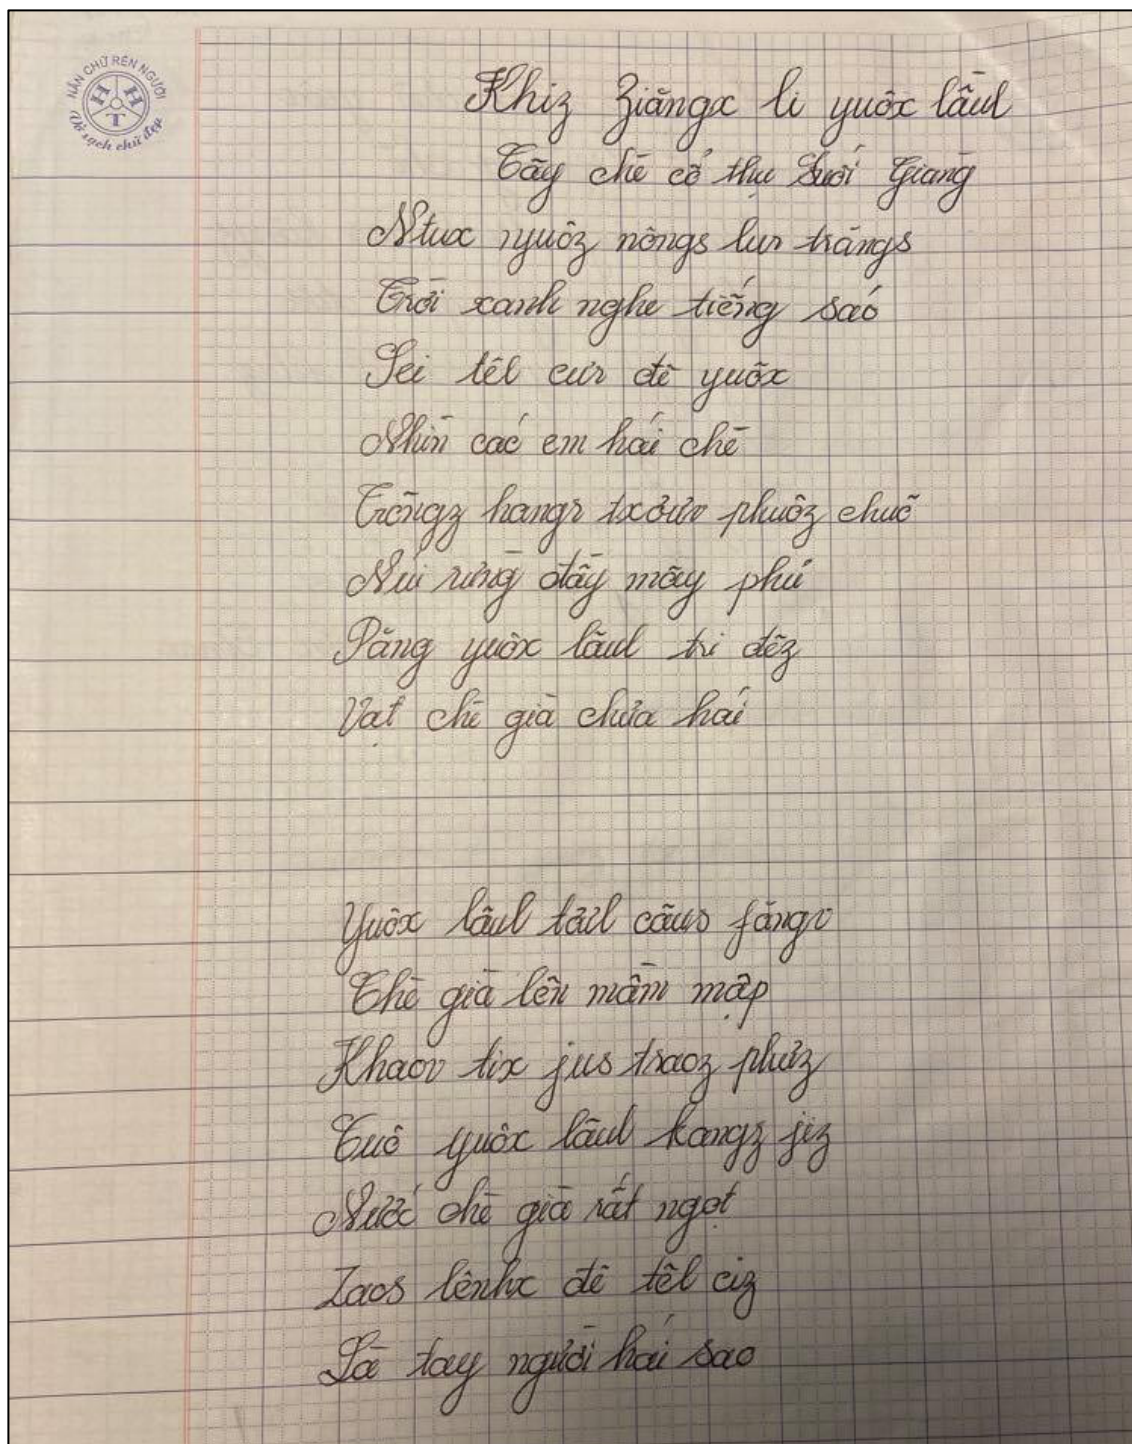 NẮN CHỮ RÈN NGƯỜI
HHT
Vở sạch chữ đẹp
Khiz Ziăngx li yuôx lâul
Cây chè cổ thụ Suối Giàng
Ntux nyuôz nôngs lur trángs
Trời xanh nghe tiếng sáo
Sei têl cur đê yuôx
Nhìn các em hái chè
Trôngz hangr txơưv phuôz chuô
Núi rừng đầy mây phủ
Păng yuôx lâul tri đêz
Vạt chè già chưa hái
Yuôx lâul tâul câus fângv
Chè già lên mầm mập
Khaov tix jus traoz phưz
Cuô yuôx lâul kangz jiz
Nước chè già rất ngọt
Zaos lênhx đê têl ciz
Là tay người hái sao